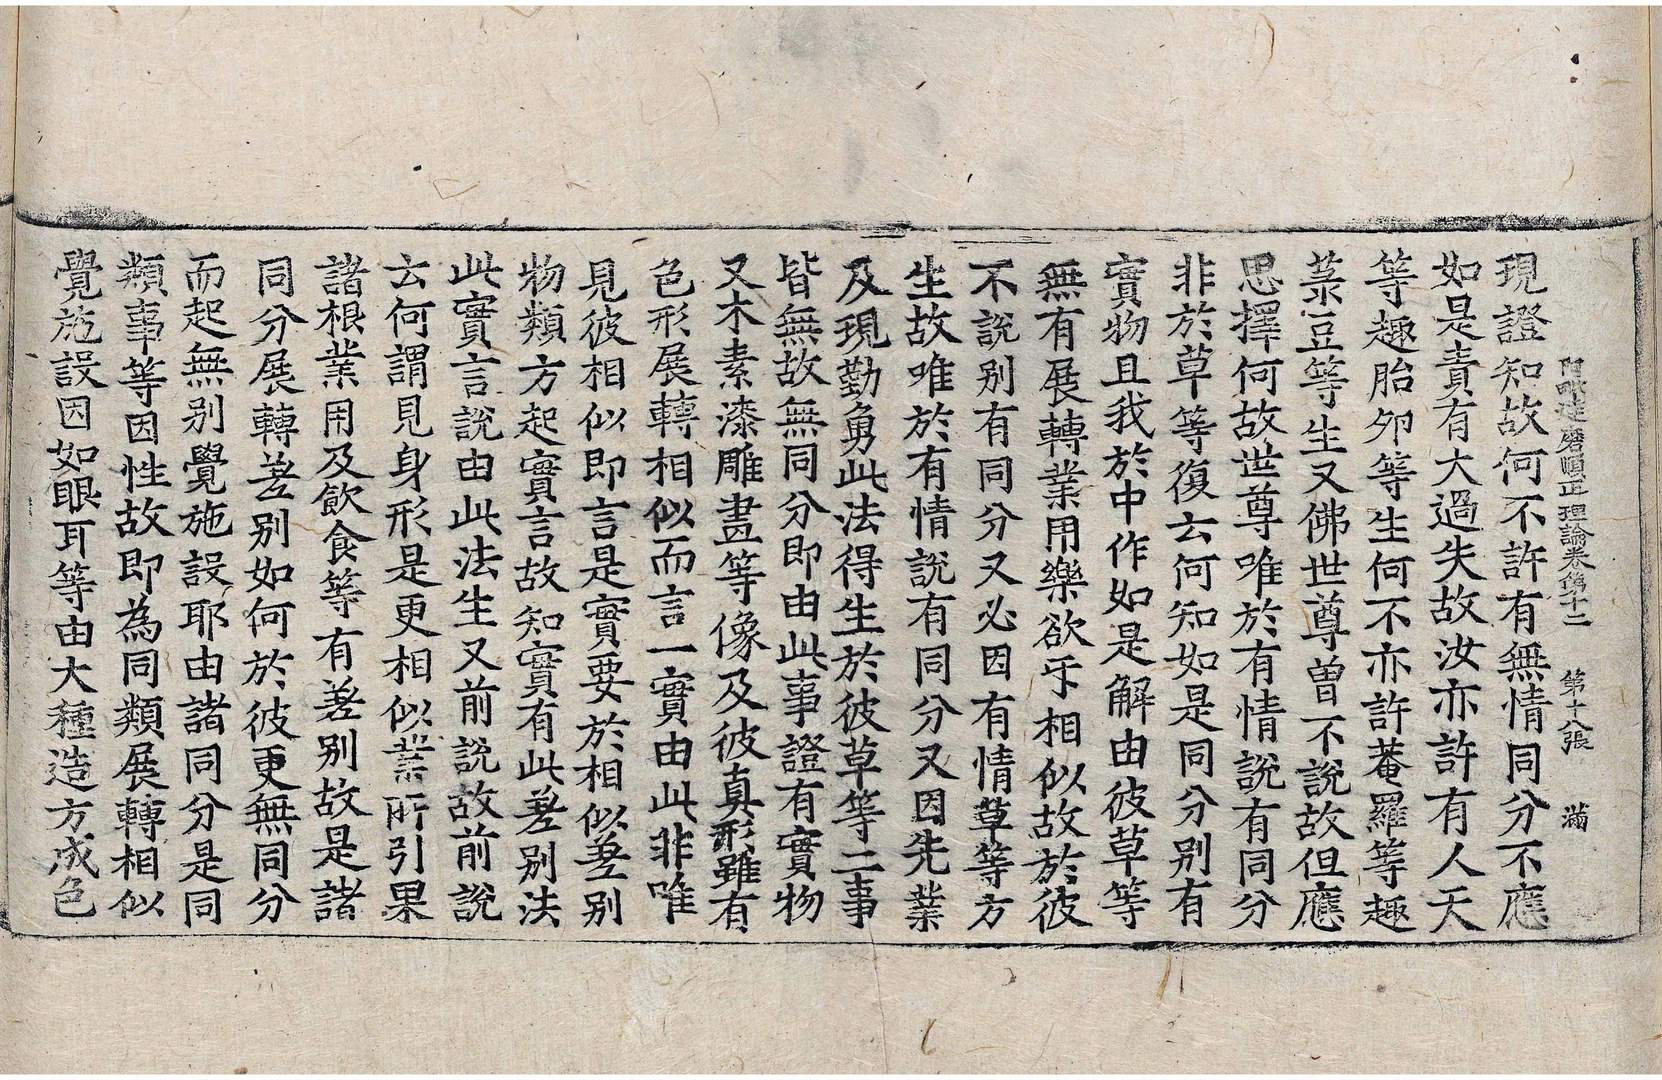 阿毗達磨順正理論卷第十二　第十八張　滿
現證知故何不許有無情同分不應
如是責有大過失故汝亦許有人天
等趣胎卵等生何不亦許菴羅等趣
菉豆等生又佛世尊曾不說故但應
思擇何故世尊唯於有情說有同分
非於草等復云何知如是同分別有
實物且我於中作如是解由彼草等
無有展轉業用樂欲乎相似故於彼
不說別有同分又必因有情草等方
生故唯於有情說有同分又因先業
及現勤勇此法得生於彼草等二事
皆無故無同分即由此事證有實物
又木素漆雕畫等像及彼真形雖有
色形展轉相似而言一實由此非唯
見彼相似即言是實要於相似差別
物類方起實言故知實有此差別法
此實言說由此法生又前說故前說
云何謂見身形是更相似業所引果
諸根業用及飲食等有差別故是諸
同分展轉差別如何於彼更無同分
而起無別覺施設耶由諸同分是同
類事等因性故即為同類展轉相似
覺施設因如眼耳等由大種造方成色